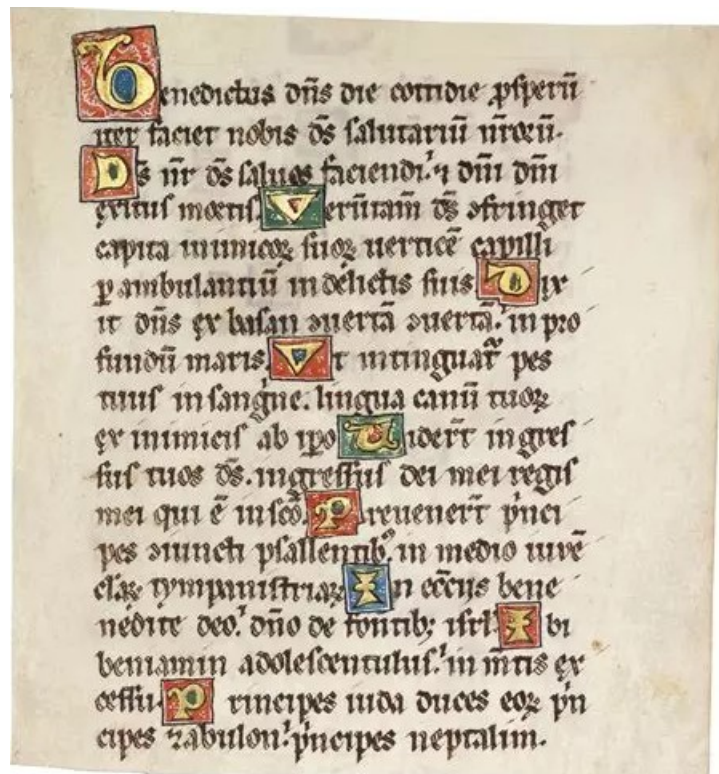 Benedictus dn̄s die cottidie ꝓsperū
iter faciet nobis ds̄ salutariū nr̄orū.
Ds̄ nr̄ ds̄ saluos faciendi. ⁊ dn̄i dn̄i
exitus mortis. Uerūtam̄ ds̄ ɔfringet
capita inimicoꝝ suoꝝ uerticē capilli
ꝑambulantiū in delictis suis Dix
it dn̄s ex basan ɔuertā ɔuertā. in pro
fundū maris. Ut intinguat᷑ pes
tuus in sangͥne. lingua canū tuoꝝ
ex inimicis ab ip̄o Uider̄t ingres
sus tuos ds̄. ingressus dei mei regis
mei qui ē in sc̄o. Preuener̄t pͥnci
pes ɔiuncti psallentibꝫ in medio iuuē
claꝝ tympanistriaꝝ In ecc̄iis bene
nedicite deo. dn̄o de fontibꝫ isrl̄ Ibi
beniamin adolescentulus. in m̄tis ex
cessu Principes iuda duces eoꝝ pͥn
cipes zabulon. pͥncipes neptalim.